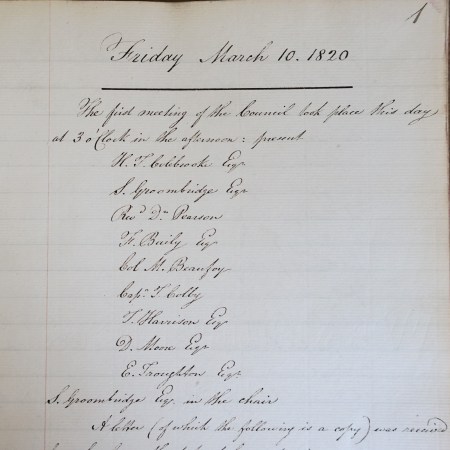 1
Friday March 10. 1820
The first meeting of the Council took place this day
at 3 o'Clock in the afternoon: present
H. T. Colebrooke Esqr
S. Groombridge Esqr
Revd Dr Pearson
F. Baily Esqr
Col M. Beaufoy
Capn T. Colby
T. Harrison Esqr
D. Moore Esqr
E. Troughton Esqr
S. Groombridge Esqr in the chair
A letter (of which the following is a copy) was received